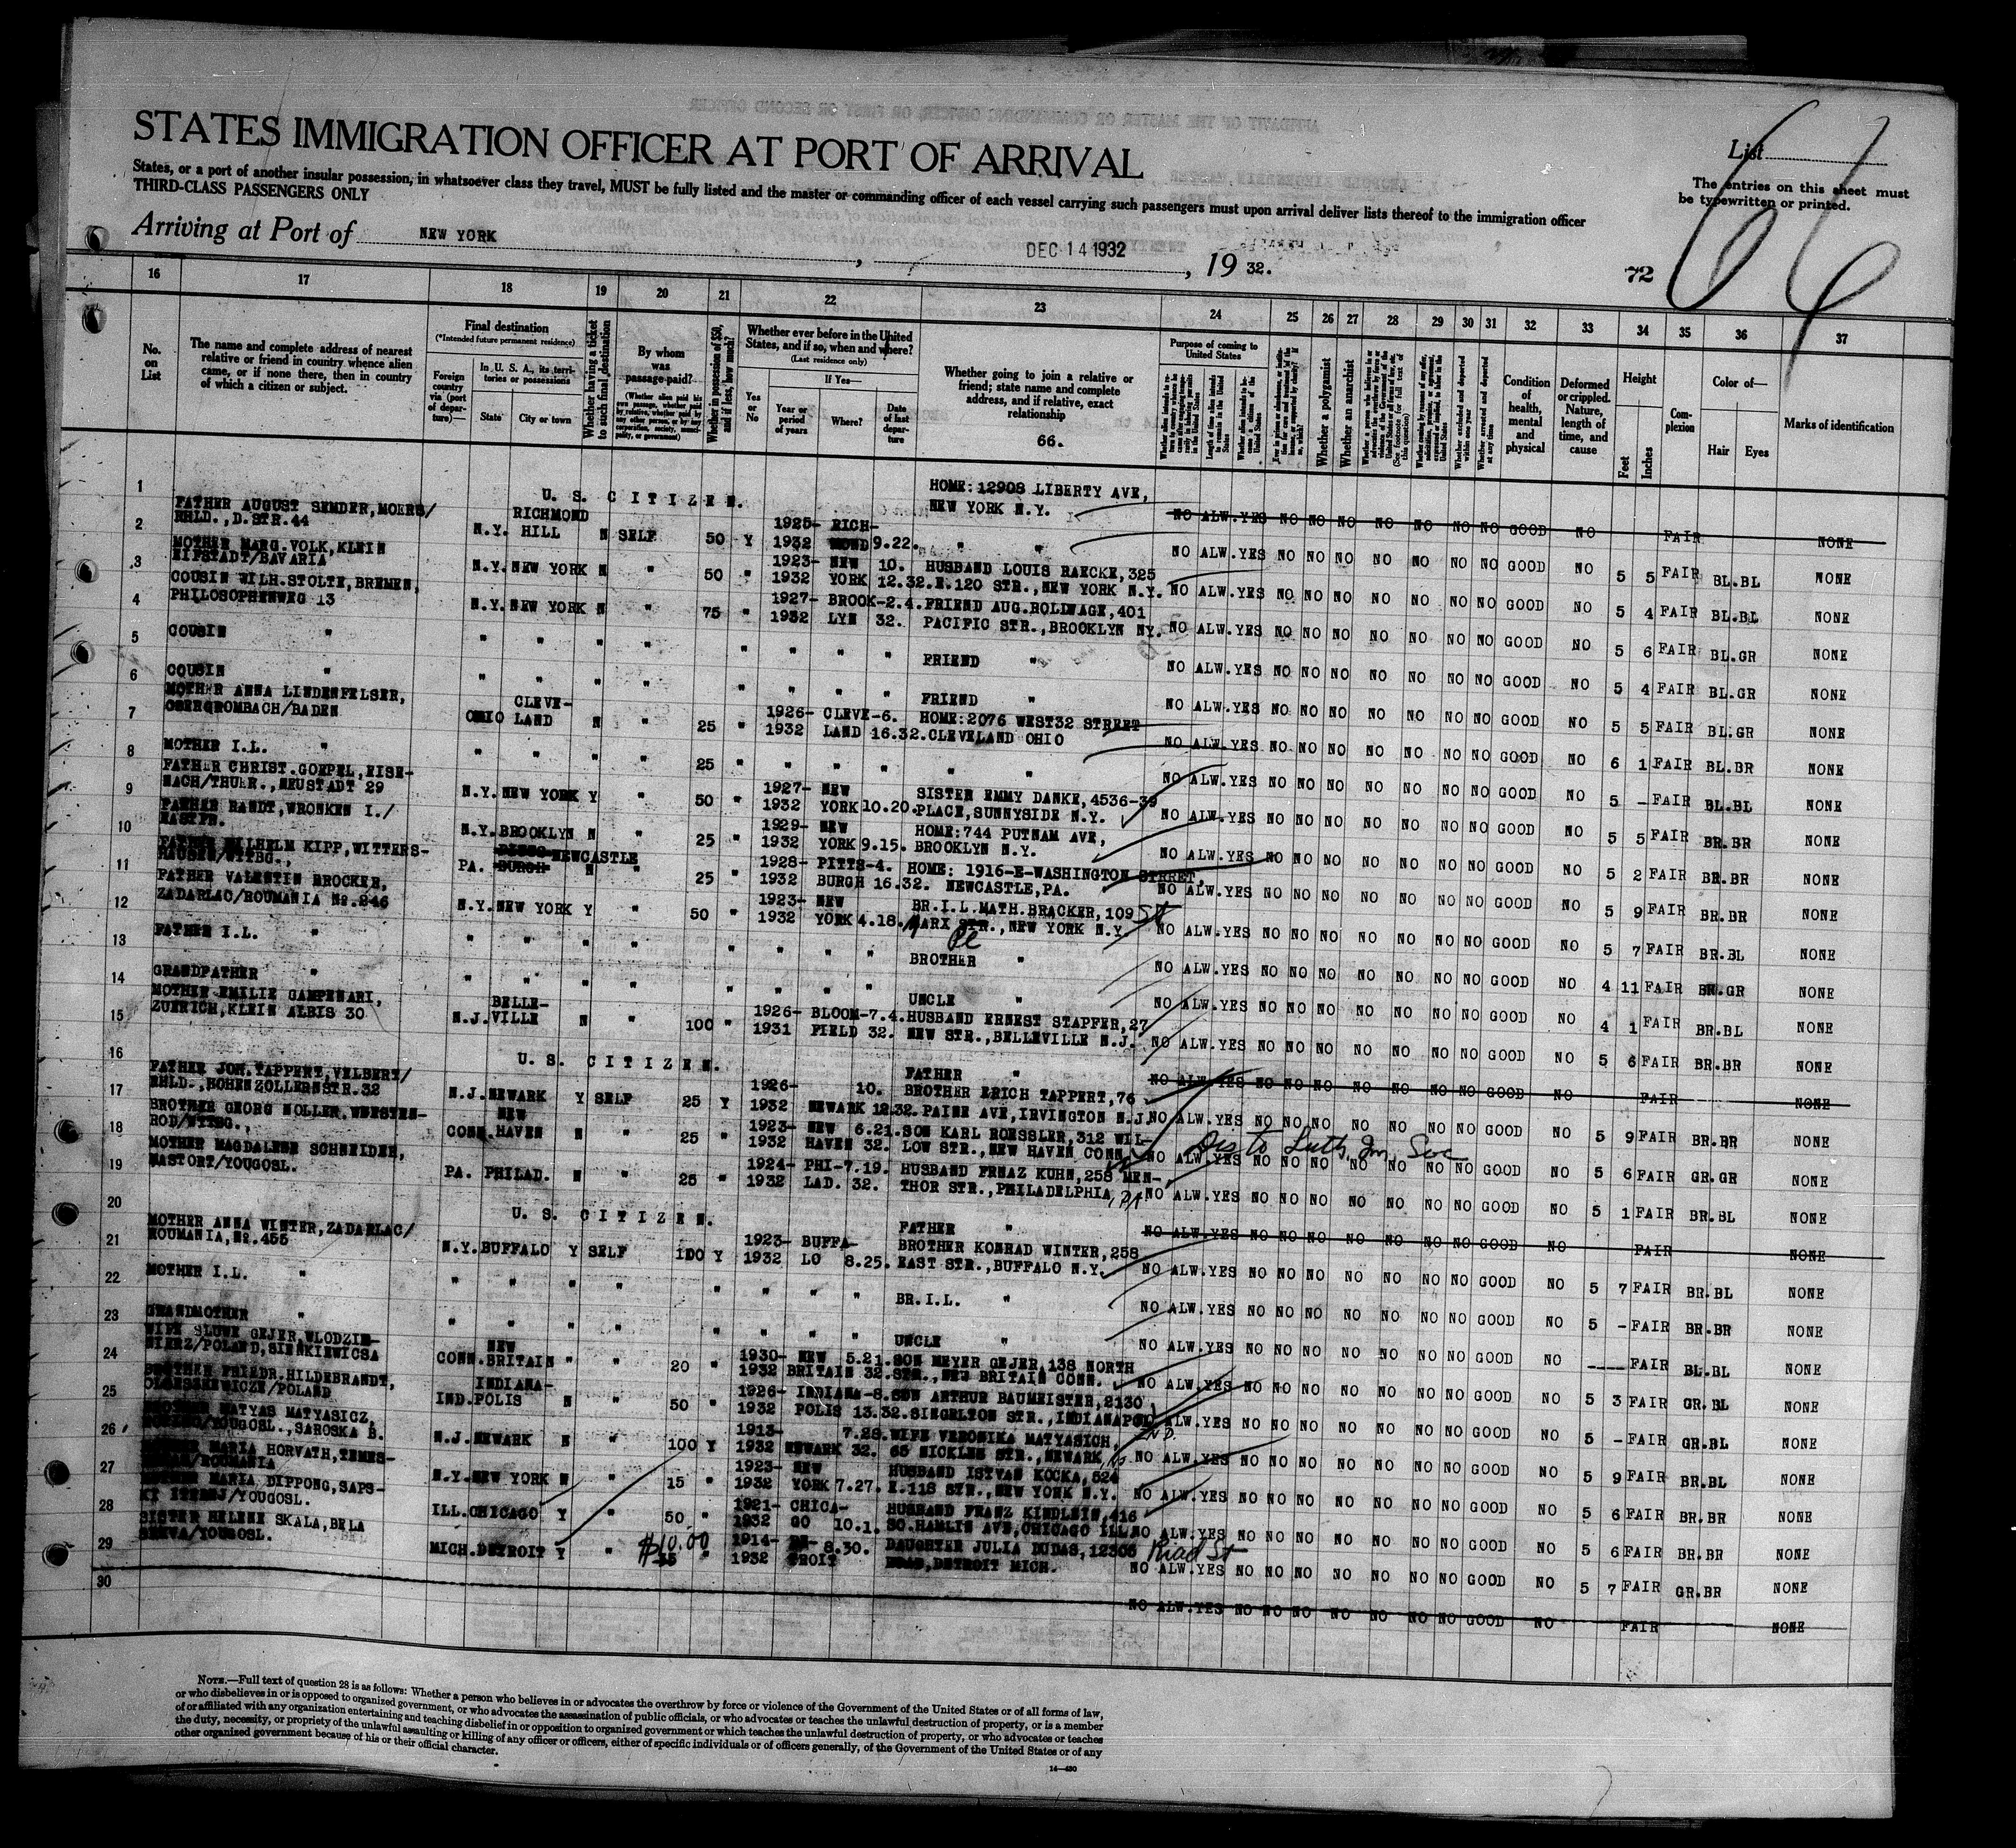 STATES IMMIGRATION OFFICER AT PORT OF ARRIVAL
States, or a port of another insular possession, in whatsoever class they travel, MUST be fully listed and the master or commanding officer of each vessel carrying such passengers must upon arrival deliver lists thereof to the immigration officer
THIRD-CLASS PASSENGERS ONLY
List
66
The entries on this sheet must
be typewritten or printed.
Arriving at Port of NEW YORK, DEC 14 1932, 19 32.
72
16 17 18 19 20 21 22 23 24 25 26 27 28 29 30 31 32 33 34 35 36 37
No. on List
The name and complete address of nearest relative or friend in country whence alien came, or if none there, then in country of which a citizen or subject.
Final destination
(*Intended future permanent residence)
Foreign country via (port of departure)—
In U. S. A., its territories or possessions
State
City or town
Whether having a ticket to such final destination
By whom was passage paid?
(Whether alien paid his own passage, whether paid by relative, whether paid by any other person, or by any corporation, society, municipality, or government)
Whether in possession of $50, and if less, how much?
Whether ever before in the United States, and if so, when and where?
(Last residence only)
Yes or No
If Yes—
Year or period of years
Where?
Date of last departure
Whether going to join a relative or friend; state name and complete address, and if relative, exact relationship
66.
Purpose of coming to United States
Length of time alien intends to remain in the United States
Whether a polygamist
Whether an anarchist
Whether arrested and deported at any time
Condition of health, mental and physical
Deformed or crippled. Nature, length of time, and cause
Height
Feet
Inches
Complexion
Color of—
Hair
Eyes
Marks of identification
1 U. S. CITIZEN. HOME: 12908 LIBERTY AVE, NEW YORK N.Y. NO ALW.YES NO NO NO NO NO NO NO GOOD NO FAIR NONE
2 FATHER AUGUST SEMDER, MOERS/ RHLD., D.STR.44 N.Y. RICHMOND HILL N SELF 50 Y 1925-1932 RICHMOND 9.22. " " NO ALW.YES NO NO NO NO NO NO NO GOOD NO 5 5 FAIR BL.BL NONE
3 MOTHER MARG.VOLK, KLEIN EIFSTADT/BAVARIA N.Y. NEW YORK N " 50 " 1923-1932 NEW YORK 10.12.32. HUSBAND LOUIS RAECKE, 325 E.120 STR., NEW YORK N.Y. NO ALW.YES NO NO NO NO NO NO NO GOOD NO 5 4 FAIR BL.BL NONE
4 COUSIN WILH.STOLTE, BREMEN, PHILOSOPHENWEG 13 N.Y. NEW YORK N " 75 " 1927-1932 BROOKLYN 2.4.32. FRIEND AUG.ROLIWAGE, 401 PACIFIC STR., BROOKLYN NY. NO ALW.YES NO NO NO NO NO NO NO GOOD NO 5 6 FAIR BL.GR NONE
5 COUSIN " " " " " " " " " FRIEND " NO ALW.YES NO NO NO NO NO NO NO GOOD NO 5 4 FAIR BL.GR NONE
6 COUSIN " " " " " " " " " FRIEND " NO ALW.YES NO NO NO NO NO NO NO GOOD NO 5 5 FAIR BL.GR NONE
7 MOTHER ANNA LINDENFELSER, OBERGROMBACH/BADEN OHIO CLEVELAND N " 25 " 1926-1932 CLEVELAND 6.16.32. HOME: 2076 WEST32 STREET CLEVELAND OHIO NO ALW.YES NO NO NO NO NO NO NO GOOD NO 6 1 FAIR BL.BR NONE
8 MOTHER I.L. " " " " " 25 " " " " " " NO ALW.YES NO NO NO NO NO NO NO GOOD NO 5 - FAIR BL.BL NONE
9 FATHER CHRIST.GOEPEL, EISENACH/THUER., NEUSTADT 29 N.Y. NEW YORK Y " 50 " 1927-1932 NEW YORK 10.20. SISTER EMMY DANKE, 4536-39 PLACE, SUNNYSIDE N.Y. NO ALW.YES NO NO NO NO NO NO NO GOOD NO 5 5 FAIR BR.BR NONE
10 FATHER RANDT, WRONKEN I./ MASTPR. N.Y. BROOKLYN N " 25 " 1929-1932 NEW YORK 9.15. HOME: 744 PUTNAM AVE, BROOKLYN N.Y. NO ALW.YES NO NO NO NO NO NO NO GOOD NO 5 2 FAIR BR.BR NONE
11 FATHER WILHELM KIPP, WITTERSHAUSEN/WTTBG., PA. NEWCASTLE N " 25 " 1928-1932 PITTSBURGH 4.16.32. HOME: 1916-E-WASHINGTON STREET, NEWCASTLE, PA. NO ALW.YES NO NO NO NO NO NO NO GOOD NO 5 9 FAIR BR.BR NONE
12 FATHER VALENTIN BROCKER, ZADARLAC/ROUMANIA No.246 N.Y. NEW YORK Y " 50 " 1923-1932 NEW YORK 4.18. BR.I.L.MATH.BRACKER, 109 St MARX STR., NEW YORK N.Y. Pl NO ALW.YES NO NO NO NO NO NO NO GOOD NO 5 7 FAIR BR.BL NONE
13 FATHER I.L. " " " " " " " " " BROTHER " NO ALW.YES NO NO NO NO NO NO NO GOOD NO 4 11 FAIR BR.GR NONE
14 GRANDFATHER " " " " " " " " " UNCLE " NO ALW.YES NO NO NO NO NO NO NO GOOD NO 4 1 FAIR BR.BL NONE
15 MOTHER EMILIE GAMPENARI, ZUERICH, KLEIN ALBIS 30 N.J. BELLEVILLE N " 100 " 1926-1931 BLOOMFIELD 7.4.32. HUSBAND ERNEST STAPFER, 27 NEW STR., BELLEVILLE N.J. NO ALW.YES NO NO NO NO NO NO NO GOOD NO 5 6 FAIR BR.BR NONE
16 U. S. CITIZEN. FATHER " NO ALW.YES NO NO NO NO NO NO NO GOOD NO FAIR NONE
17 FATHER JOH.TAPPERT, VELBERT/ RHLD., HOHENZOLLERNSTR.32 N.J. NEWARK Y SELF 25 Y 1926-1932 NEWARK 10.12.32. BROTHER ERICH TAPPERT, 76 PAINE AVE, IRVINGTON N.J. NO ALW.YES NO NO NO NO NO NO NO GOOD NO 5 9 FAIR BR.BR NONE
18 BROTHER GEORG MOLLER, WUESTENROD/WTTBG., CONN. NEW HAVEN N " 25 " 1923-1932 NEW HAVEN 6.21.32. SON KARL ROESSLER, 312 WILLOW STR., NEW HAVEN CONN. Dis to Luth. Im. Soc NO ALW.YES NO NO NO NO NO NO NO GOOD NO 5 6 FAIR GR.GR NONE
19 MOTHER MAGDALENE SCHNEIDER, MASTORT/YOUGOSL. PA. PHILAD. N " 25 " 1924-1932 PHILAD. 7.19.32. HUSBAND FRNAZ KUHN, 258 MENTHOR STR., PHILADELPHIA, PA NO ALW.YES NO NO NO NO NO NO NO GOOD NO 5 1 FAIR BR.BL NONE
20 U. S. CITIZEN. FATHER " NO ALW.YES NO NO NO NO NO NO NO GOOD NO FAIR NONE
21 MOTHER ANNA WINTER, ZADARLAC/ ROUMANIA, No.455 N.Y. BUFFALO Y SELF 100 Y 1923-1932 BUFFALO 8.25. BROTHER KONRAD WINTER, 258 EAST STR., BUFFALO N.Y. NO ALW.YES NO NO NO NO NO NO NO GOOD NO 5 7 FAIR BR.BL NONE
22 MOTHER I.L. " " " " " " " " " BR.I.L. " NO ALW.YES NO NO NO NO NO NO NO GOOD NO 5 - FAIR BR.BR NONE
23 GRANDMOTHER " " " " " " " " " UNCLE " NO ALW.YES NO NO NO NO NO NO NO GOOD NO ---- FAIR BL.BL NONE
24 WIFE SLUWE GEJER, WLODZIMIERZ/POLAND, SIENKIEWICSA CONN. NEW BRITAIN " " 20 " 1930-1932 NEW BRITAIN 5.21.32. SON MEYER GEJER, 138 NORTH STR., NEW BRITAIN CONN. NO ALW.YES NO NO NO NO NO NO NO GOOD NO 5 3 FAIR GR.BL NONE
25 BROTHER FRIEDR.HILDEBRANDT, /POLAND IND. INDIANAPOLIS N " 50 " 1926-1932 INDIANAPOLIS 8.13.32. SON ARTHUR BAUMEISTER, 2130 SINGELTON STR., INDIANAPOL IND. ALW.YES NO NO NO NO NO NO NO GOOD NO 5 - FAIR GR.BL NONE
26 MATYAS MATYASICZ, /YOUGOSL., SAROSKA B. N.J. NEWARK N " 100 Y 1913-1932 NEWARK 7.28.32. WIFE VERONIKA MATYASICH, 65 NICKLES STR., NEWARK NO ALW.YES NO NO NO NO NO NO NO GOOD NO 5 9 FAIR BR.BL NONE
27 MARIA HORVATH, TEMES- /ROUMANIA N.Y. NEW YORK N " 15 " 1923-1932 NEW YORK 7.27. HUSBAND ISTVAN KOCKA, 524 E.118 STR., NEW YORK N.Y. NO ALW.YES NO NO NO NO NO NO NO GOOD NO 5 6 FAIR BR.BR NONE
28 MOTHER MARIA DIPPONG, SAPSKI ITEBEJ/YOUGOSL. ILL. CHICAGO Y " 50 " 1921-1932 CHICAGO 10.1. HUSBAND FRANZ KINDLEIN, 416 SO.HAMLIN AVE, CHICAGO ILL. NO ALW.YES NO NO NO NO NO NO NO GOOD NO 5 6 FAIR BR.BR NONE
29 SISTER HELENE SKALA, BELA /YOUGOSL. MICH. DETROIT Y " $10.00 " 1914-1932 DETROIT 8.30. DAUGHTER JULIA DUDAS, 12306 Riad St ROAD, DETROIT MICH. NO ALW.YES NO NO NO NO NO NO NO GOOD NO 5 7 FAIR GR.BR NONE
30 NO ALW.YES NO NO NO NO NO NO NO GOOD NO FAIR NONE
NOTE.—Full text of question 28 is as follows: Whether a person who believes in or advocates the overthrow by force or violence of the Government of the United States or of all forms of law,
or who disbelieves in or is opposed to organized government, or who advocates the assassination of public officials, or who advocates or teaches the unlawful destruction of property, or is a member
of or affiliated with any organization entertaining and teaching disbelief in or opposition to organized government or which teaches the unlawful destruction of property, or who advocates or teaches
the duty, necessity, or propriety of the unlawful assaulting or killing of any officer or officers, either of specific individuals or of officers generally, of the Government of the United States or of any
other organized government because of his or their official character.
14—430